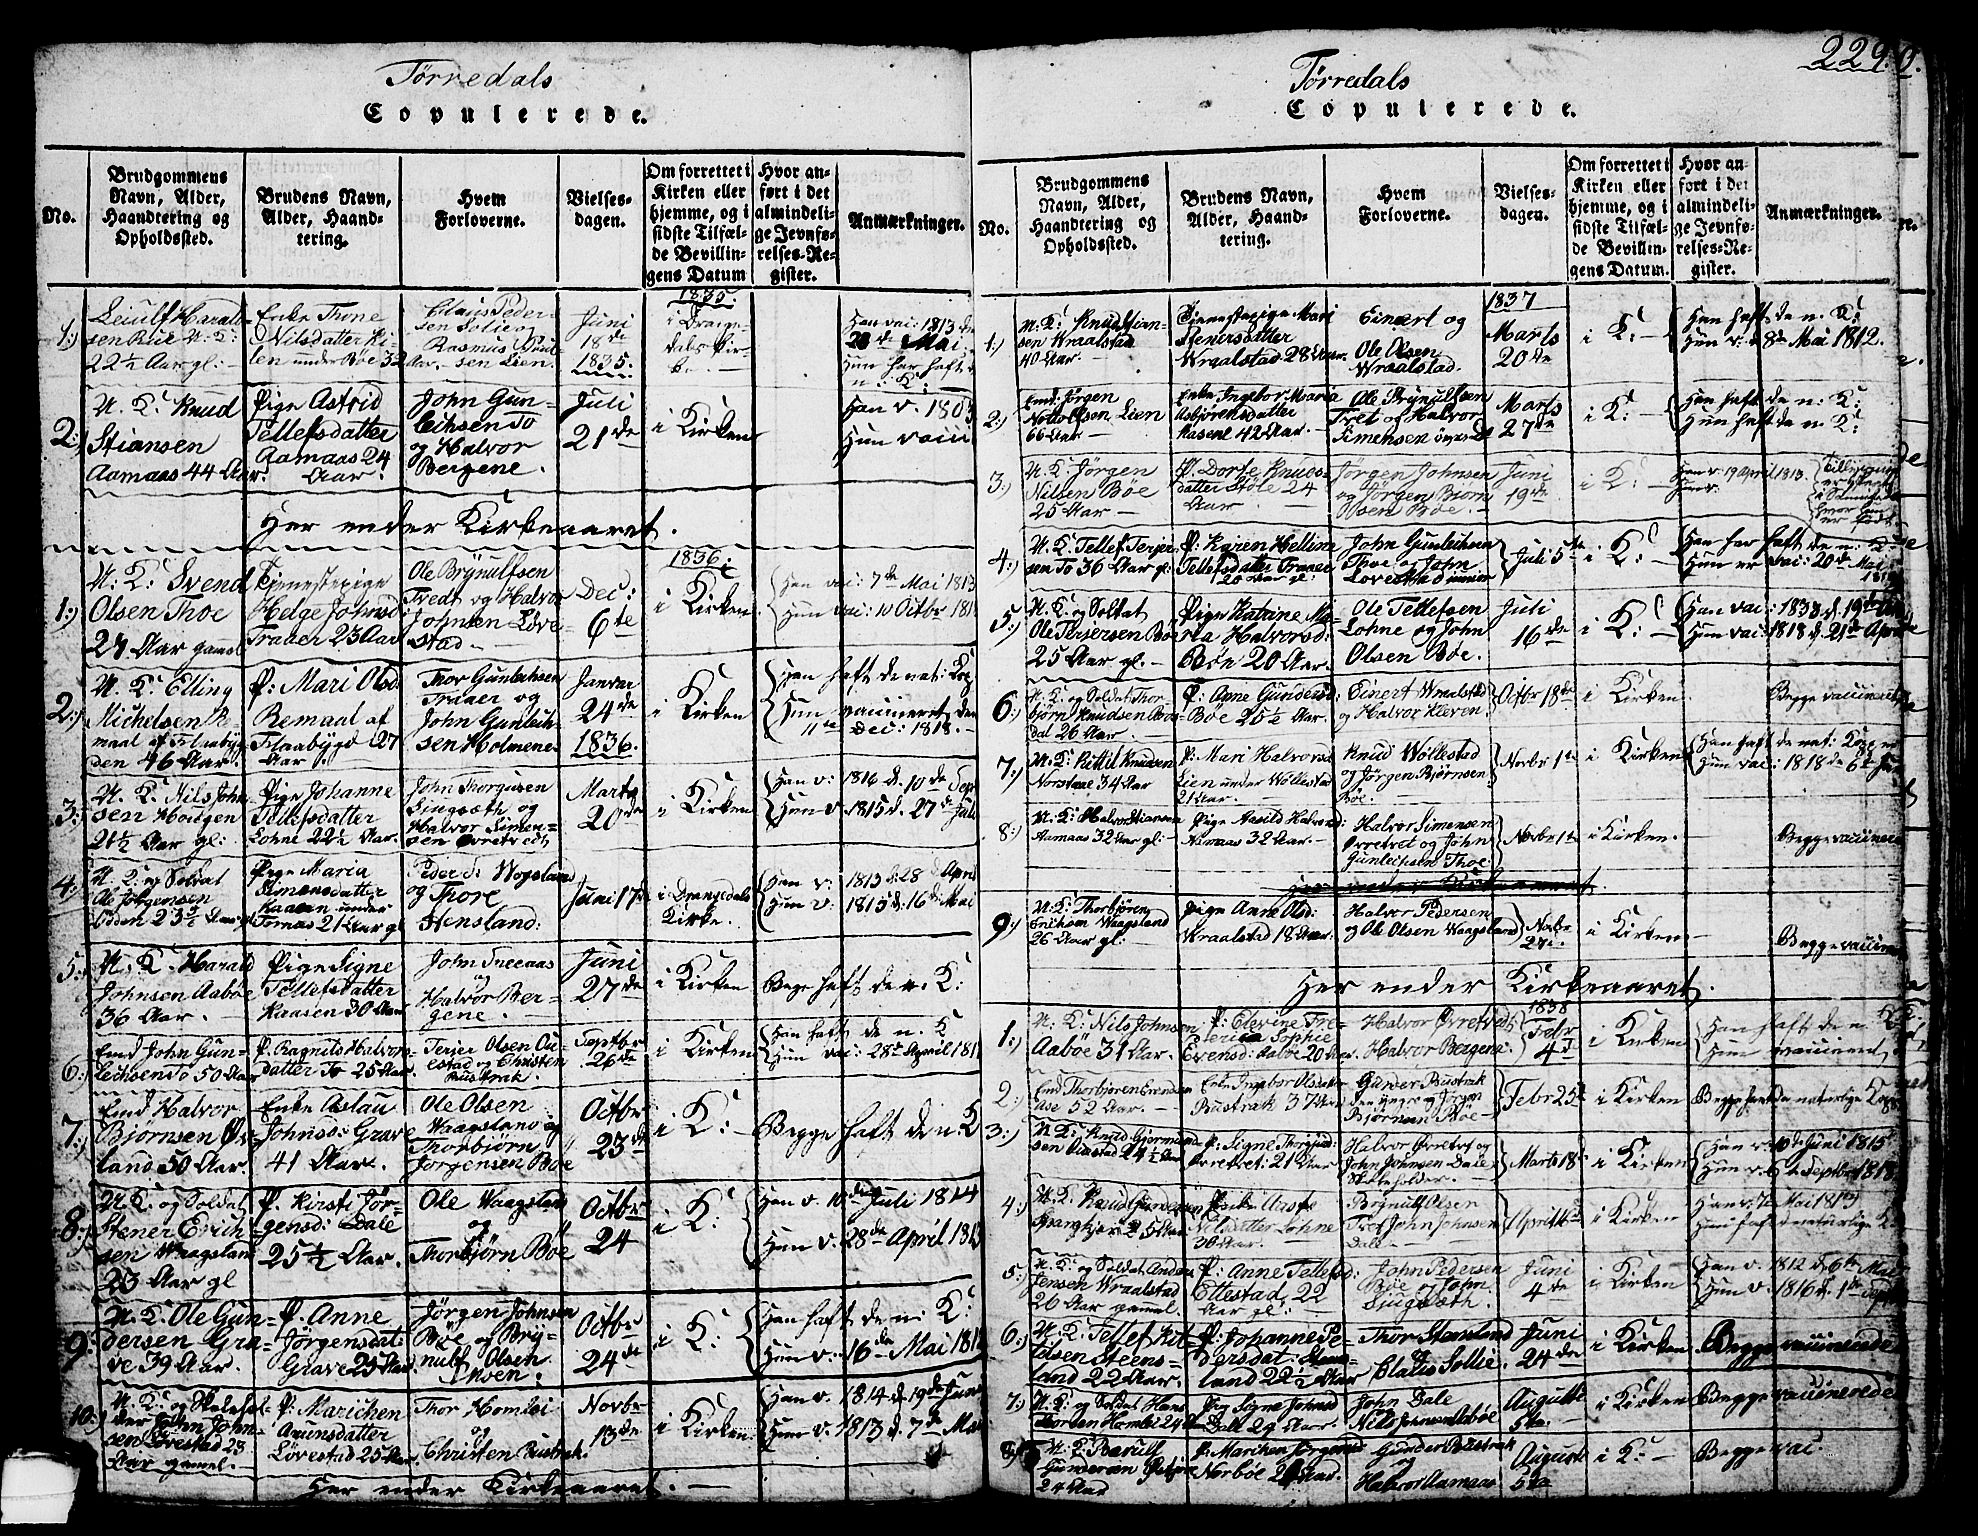 Tørredals
Copulerede.
No.
Brudgommens Navn, Alder, Haandtering og Opholdssted.
Brudens Navn, Alder, Haandtering.
Hvem Forloverne.
Vielsesdagen.
Om forrettet i Kirken eller hjemme, og i sidste Tilfælde Bevillingens Datum
Hvor anført i det almindelige Jevnførelses-Register.
Anmærkninger.
1835.
1:)
Enke Thone
Nilsdatter
Claus Peder-
Rasmus
Juni
18de
1835.
Han vac: 1813
Mai
Hun har haft
n: K:
22½ Aar gl:
2:)
U. K: Knud
Stiansen
Aamaas 44 Aar.
Pige Astrid
Tellefsdatter
Aamaas 24
Aar.
John Gun-
lechsen To
og Halvor
Bergene.
Juli
21de
i Kirken
Han v. 1803
Hun vacci
Her ender Kirkeaaret.
1836.
1:)
U: K: Svend
Olsen Thoe
27 Aar gamel
Tjenestepige
Helge Johnsd:
Traaer 23 Aar
Ole Brynulfsen
Tredt og Halvor
Johnsen Løve-
stad
Dec:
6te
i Kirken
Han vac: 7de Mai 1813
Hun vac: 10 Octbr 181
2:)
U. K: Elling
Michelsen Re-
maal af Flaabyg-
den 46 Aar.
P: Mari Olsd:
Remaal af
Flaabygd 27
Aar.
Thor Gunlechsen
Traaer og
John Gunlech-
sen Holmene
Janvar
24de
1836.
i Kirken
Han haft de nat: Kop
Hun vaccineret den
11te Dec: 1818.
3:)
U. K. Nils John-
sen Hougen
21½ Aar gl:
Pige Johanne
Tellefsdatter
Lohne 22½ Aar.
John Thorgusen
og
Halvor Simen-
sen
Marts
20de
i Kirken
Han v: 1816 d. 10de Sept
Hun v. 1815 d. 27de Juli
4:)
U. K: og Soldat
Ole Jørgensen
23½ Aar gl
Pige Maria
Simensdatter
Kaasen under
Tornas 21 Aar gl
Peder d: Wogsland
og Thore
Stensland:
Juni 17de
i Drangedals
Kirke.
Han v: 1813 d. 28de April
Hun v: 1815 d: 16de Mai
5:)
U. K: Harald
Johnsen Aabøe
36 Aar.
Pige Signe
Tellefsdatter
Kaasen 30 Aar
John
Halvor Ber-
gene.
Juni
27de
i Kirken
Bege haft de n. K:
6:)
Emd John Gun-
lechsen To 50 Aar
P. Ragnild Halvors-
datter To 25 Aar.
Terjer Olsen
og Christen
Bustrak.
26de
i Kirken
Han haft de n. K
Hun vac: 28de April 181
7:)
Emd Halvor
Bjørnsen
land 50 Aar.
Enke Aslau
Johnsd: Grave
41 Aar.
Ole Olsen
Waagsland og
Thorbjørn
Jørgensen Bøe
Octbr
23de
i K:
Begge haft de n. K
8:)
U. K: og Soldat
Stener Erich-
sen Waagsland
23 Aar gl
P. Kirsti Jør-
gensd: Dale
25½ Aar.
Ole Waagsland
og
Thorbjørn Bøe
Octbr
24
i K:
Han v. 10de Juli 1814
Hun v: 28de April 1813
9:)
U. K. Ole Gun-
dersen Gra-
ve 39 Aar.
P. Anne
Jørgensdat:
Grave 25 Aar.
Jørgen Johnsen
Bøe og Bry-
nulf Olsen
Octbr
24de
i K:
Han haft de n: K:
Hun v: 16de Mai 181
10:)
U. K: og
John John-
sen Løvestad 23
Aar gamel.
P: Marichen
Løvestad 25 Aar.
Thor Homlei
og
Christen Bustrak.
Novbr
13de
i Kirken
Han v. 1814 d. 19de Juni
Hun v. 1813 d. 7de Ma
Her ender Kirkeaaret.
229
Tørredals
Copulerede.
No.
Brudgommens Navn, Alder, Haandtering og Opholdssted.
Brudens Navn, Alder, Haandtering.
Hvem Forloverne.
Vielsesdagen.
Om forrettet i Kirken eller hjemme, og i sidste Tilfælde Bevillingens Datum.
Hvor anført i det almindelige Jevnførelses-Register.
Anmærkninger.
1837
1:)
U: K: Knud Stian-
sen Wraalstad
40 Aar.
Tjenestepige Mari
Stenersdatter
Wraalstad 28 Aar.
Einert og
Ole Olsen
Wraalstad.
Marts
20de
i K:
Han haft de n. K:
Hun v: 8de Mai 1812.
2:)
Emd: Jørgen
Notolfsen Lien
66 Aar
Enke Ingebor Maria
Asbjørensdatter
42 Aar.
Ole Brynulfsen
Tret og Halvor
Simensen
Marts
27de
i K:
Han haft de n: K:
Hun haft de n. K:
3:)
U. K: Jørgen
Nilsen Bøe
25 Aar
P. Dorte Knuds-
datter Støle 24
Aar.
Jørgen Johnsen
og Jørgen Bjørn
Olsen Bøe.
Juni
19de
i K:
Han v: 19 April 1813.
Hun v:
4:)
U. K: Tellef Terjer-
sen To 36 Aar gl:
P: Karen Helline
Tellefsdatter Traaer
20 Aar gl:
John Gunlechsen
Thoe og John
Løvestad junior
Juli 5te
i K:
Han har haft de n: K:
Hun er vac: 20de Mai
5:)
U. K: og Soldat
Ole Persersen Bøe
25 Aar gl.
Pige Katrine Ma-
ria Halvorsd:
Bøe 20 Aar.
Ole Tellefsen
Lohne og John
Olsen Bøe.
Juli
16de
i K:
Han vac:
Hun vac: 1818 d. 21de April
6:)
U. K: og Soldat Thor-
bjørn Knudsen
26 Aar
P: Anne Gundersd:
Bøe 25½ Aar.
Einert Wraalstad
og Halvor Kleven.
Octbr 18de
i Kirken.
Begge vaccineret
7:)
U. K: Kittil Knudsen
34 Aar
P: Mari Halvorsd
Lien under Wollestad
21 Aar.
Knud Wollestad
og Jørgen Bjørnsen
Bøe.
Novbr 1te
i Kirken
Han haft de nat: Kop
Hun vac: 1818 de 6te
8:)
U. K: Halvor Stiansen
Aamaas 32 Aar gl:
Pige Aasild Halvorsd:
32 Aar.
Halvor Simensen
Øvretret og John
Gunlechsen Thoe
Novbr 1te
i Kirken.
Begge vaccineret
Her ender Kirkeaaret
9:)
U. K: Thorbjøren
Erichsen Waagsland
26 Aar gl:
Pige Anne Olsd:
Wraalstad 18 Aar.
Halvor Pedersen
og Ole Olsen Waagsland
Novbr
i Kirken
Begge vaccine
Her ender Kirkeaaret.
1838
1:)
U. K: Nils Johnsen
Aabøe 31 Aar.
P: Elevine Fre-
Sophie
Evensd: Aabøe 20 Aar
Halvor Øvretredt
Halvor Bergene.
Febr
4de
i Kirken
Han haft de n. K:
Hun vaccineret
2:)
Emd Thorbjøren Evensen
52 Aar.
Enke Ingebor Olsdat
Bustrak 37 Aar
Gunder Bustrak
den yngre og Jørgen
Bjørnsen Bøe
Febr 25de
i Kirken
Begge havde naturlige Kop
3:)
U. K: Knud Gjermun-
sen 24½ Aar
P: Signe Thorgusd:
Øvretret: 21 Aar
Halvor Øvretret og
John Johnsen Dale
Skoleholder.
Marts 18
i Kirken
Han v. 10de Juni 1815
Hun v. 6te Septbr 1818
4:)
U. K. Knud Gundersen
25 Aar
Enke Aaste
Nilsdatter Lohne
36 Aar.
Brynulf Olsen
Tret John Johnsen
Dale
April 16de
i Kirken
Han v: 7de Mai 1813
Hun haft de naturlige K:
5:)
U. K: og Soldat Anders
Jensen Wraalstad
26 Aar gamel.
P: Anne Tellefsd:
Ellestad 22
Aar gl:
John Pedersen
Bøe og John
Juni
4de
i Kirken
Han v. 1812 d. 6te Mai
Hun v. 1816 d. 1te Septbr
6:)
U. K. Tellef Kit-
tilsen Steens-
land 22 Aar.
P: Johanne Pe-
dersdat: Steens-
land 22½ Aar
Thor Stensland
Claus Sollie.
Juni
24de
i Kirken
Begge vaccinerede
7:)
U. K: og Soldat Hans
Thorsen Homlei 24 Aar
Pig Signe Johnsd
Dale 29 Aar.
John Dale
Nils Johnsen Aabøe
Augusti
5te
i Kirken
Begge vaccinerede
8:)
U. K.
Gundersen
24 Aar
P: Marichen Jørgensd
Norbøe Aar.
Gunder Bustrak
og
Halvor Aamaas
August
5te
i K:
Begge vac